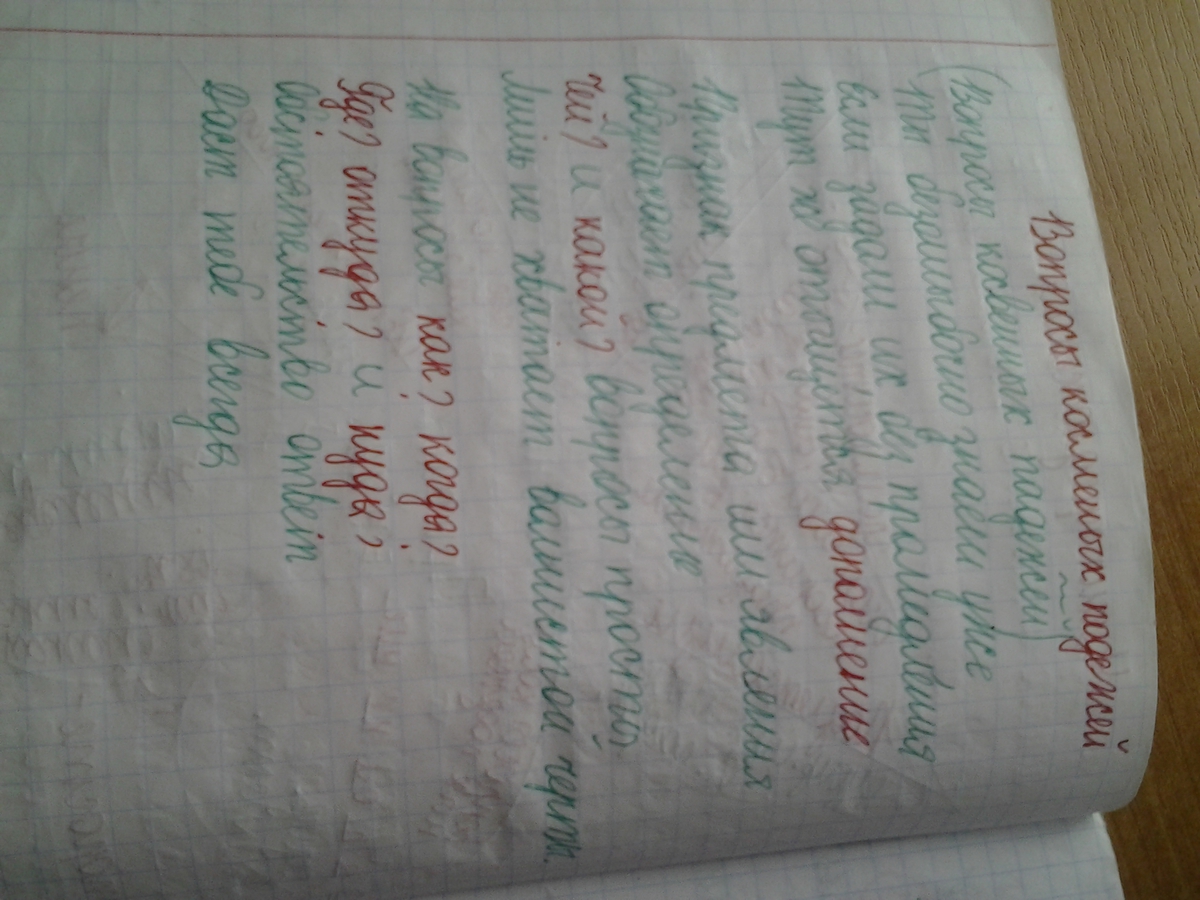 Вопросы косменых подежей
(Вопросы косвеных падежей)
Ты безошибочно знаеш уже
если задаш их без промидления
Тут же отыщится дополнение
Признак предмета или явления
вобузначает определению
Чей? и какой? вопросы простые
Лишь не хватает валнистой черты.
На вапросы как? когда?
Где? откуда? и куда?
вобстоятельство ответ
Даст тебе всегда